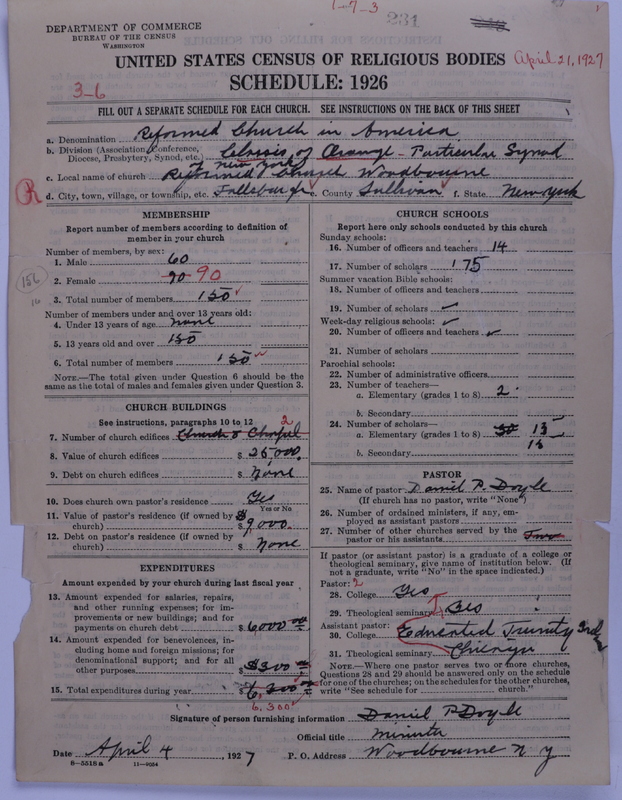 1-7-3
231
DEPARTMENT OF COMMERCE
BUREAU OF THE CENSUS
WASHINGTON
UNITED STATES CENSUS OF RELIGIOUS BODIES
April 21, 1927
SCHEDULE: 1926
3-6
FILL OUT A SEPARATE SCHEDULE FOR EACH CHURCH. SEE INSTRUCTIONS ON THE BACK OF THIS SHEET
a. Denomination Reformed Church in America
b. Division (Association, Conference, Diocese, Presbytery, Synod, etc.) Classis of Orange - Particular Synod
of New York
c. Local name of church Reformed Church Woodbourne
d. City, town, village, or township, etc. Fallsburgh e. County Sullivan f. State New York
MEMBERSHIP
Report number of members according to definition of
member in your church
Number of members, by sex:
1. Male 60
2. Female 90 90
3. Total number of members 150
Number of members under and over 13 years old:
4. Under 13 years of age none
5. 13 years old and over 150
6. Total number of members 150
NOTE.—The total given under Question 6 should be the
same as the total of males and females given under Question 3.
156
16
CHURCH BUILDINGS
See instructions, paragraphs 10 to 12
7. Number of church edifices Church & Chapel 2
8. Value of church edifices $ 25,000.
9. Debt on church edifices $ None
10. Does church own pastor's residence Yes
Yes or No
11. Value of pastor's residence (if owned by
church) $ 9,000.
12. Debt on pastor's residence (if owned by
church) $ None
EXPENDITURES
Amount expended by your church during last fiscal year
13. Amount expended for salaries, repairs,
and other running expenses; for im-
provements or new buildings; and for
payments on church debt $ 6000
14. Amount expended for benevolences, in-
cluding home and foreign missions; for
denominational support; and for all
other purposes $ $300
15. Total expenditures during year $ 6,300
6,300
CHURCH SCHOOLS
Report here only schools conducted by this church
Sunday schools:
16. Number of officers and teachers 14
17. Number of scholars 175
Summer vacation Bible schools:
18. Number of officers and teachers
19. Number of scholars
Week-day religious schools:
20. Number of officers and teachers
21. Number of scholars
Parochial schools:
22. Number of administrative officers
23. Number of teachers—
a. Elementary (grades 1 to 8) 2
b. Secondary
24. Number of scholars—
a. Elementary (grades 1 to 8) 30 15
b. Secondary 15
PASTOR
25. Name of pastor Daniel P. Doyle
(If church has no pastor, write "None")
26. Number of ordained ministers, if any, em-
ployed as assistant pastors
27. Number of other churches served by the
pastor or his assistants Two
If pastor (or assistant pastor) is a graduate of a college or
theological seminary, give name of institution below. (If
not a graduate, write "No" in the space indicated.)
Pastor: 2
28. College Yes
29. Theological seminary Yes
Assistant pastor:
30. College Educated Trinity
31. Theological seminary Chicago
NOTE.—Where one pastor serves two or more churches,
Questions 28 and 29 should be answered only on the schedule
for one of the churches; on the schedules for the other churches,
write "See schedule for church."
Signature of person furnishing information Daniel P Doyle
Official title Minister
Date April 4, 1927
P. O. Address Woodbourne N Y
8-5518a 11-9034